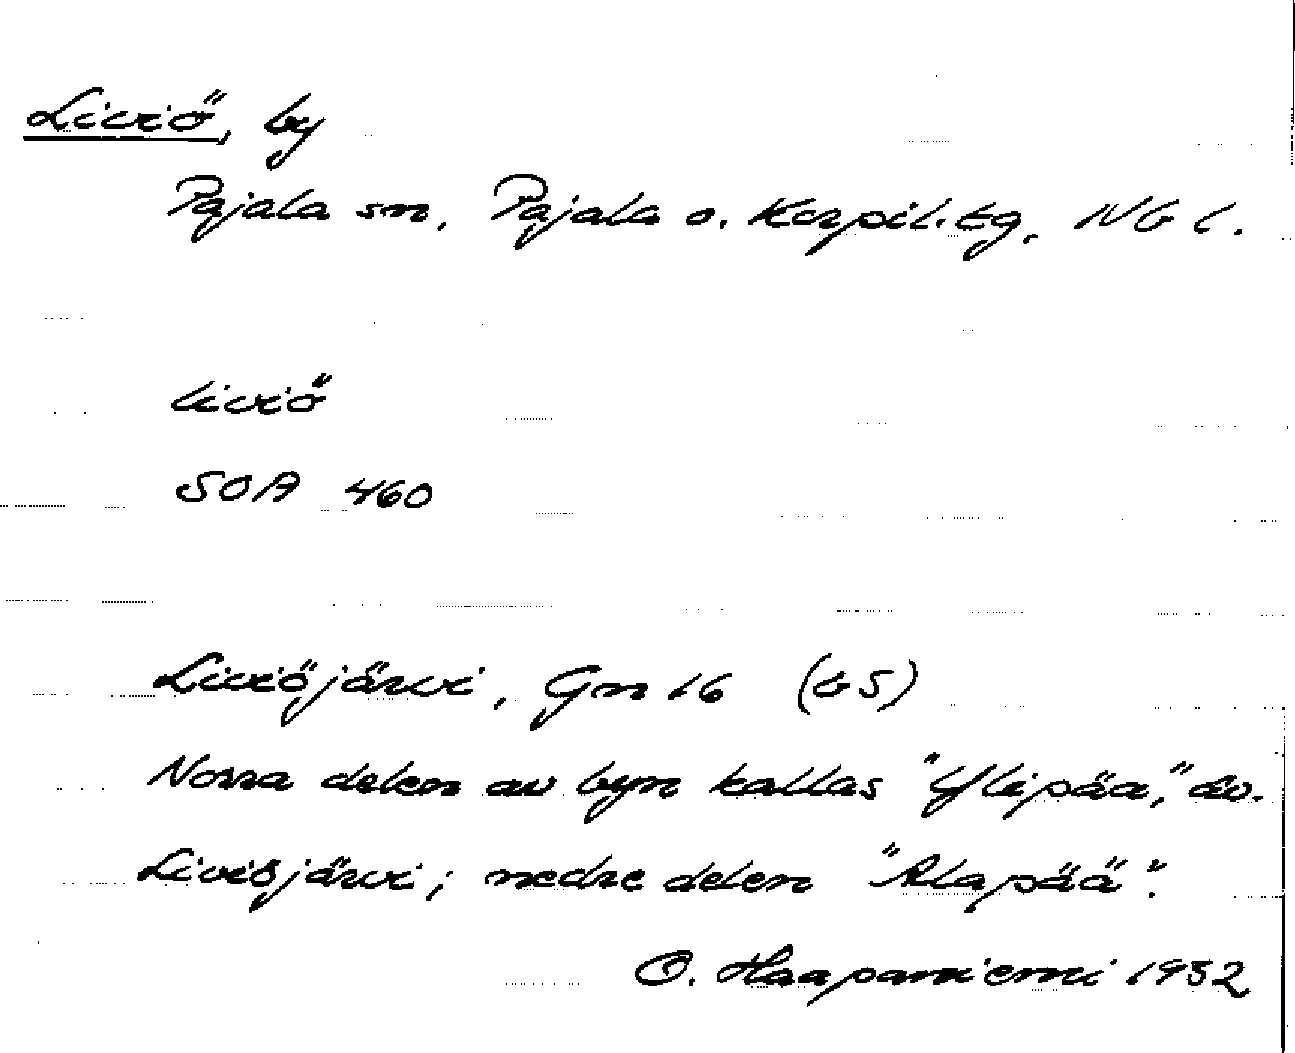 Liviö, by
Pajala sn, Pajala o. Korpil. tg, Nb l.
liviö
SOA 460
Liviöjärvi, Gm 16 (GS)
Norra delen av byn kallas "Ylipää", äv.
Liviöjärvi; nedre delen "Alapää".
O. Haapaniemi 1932